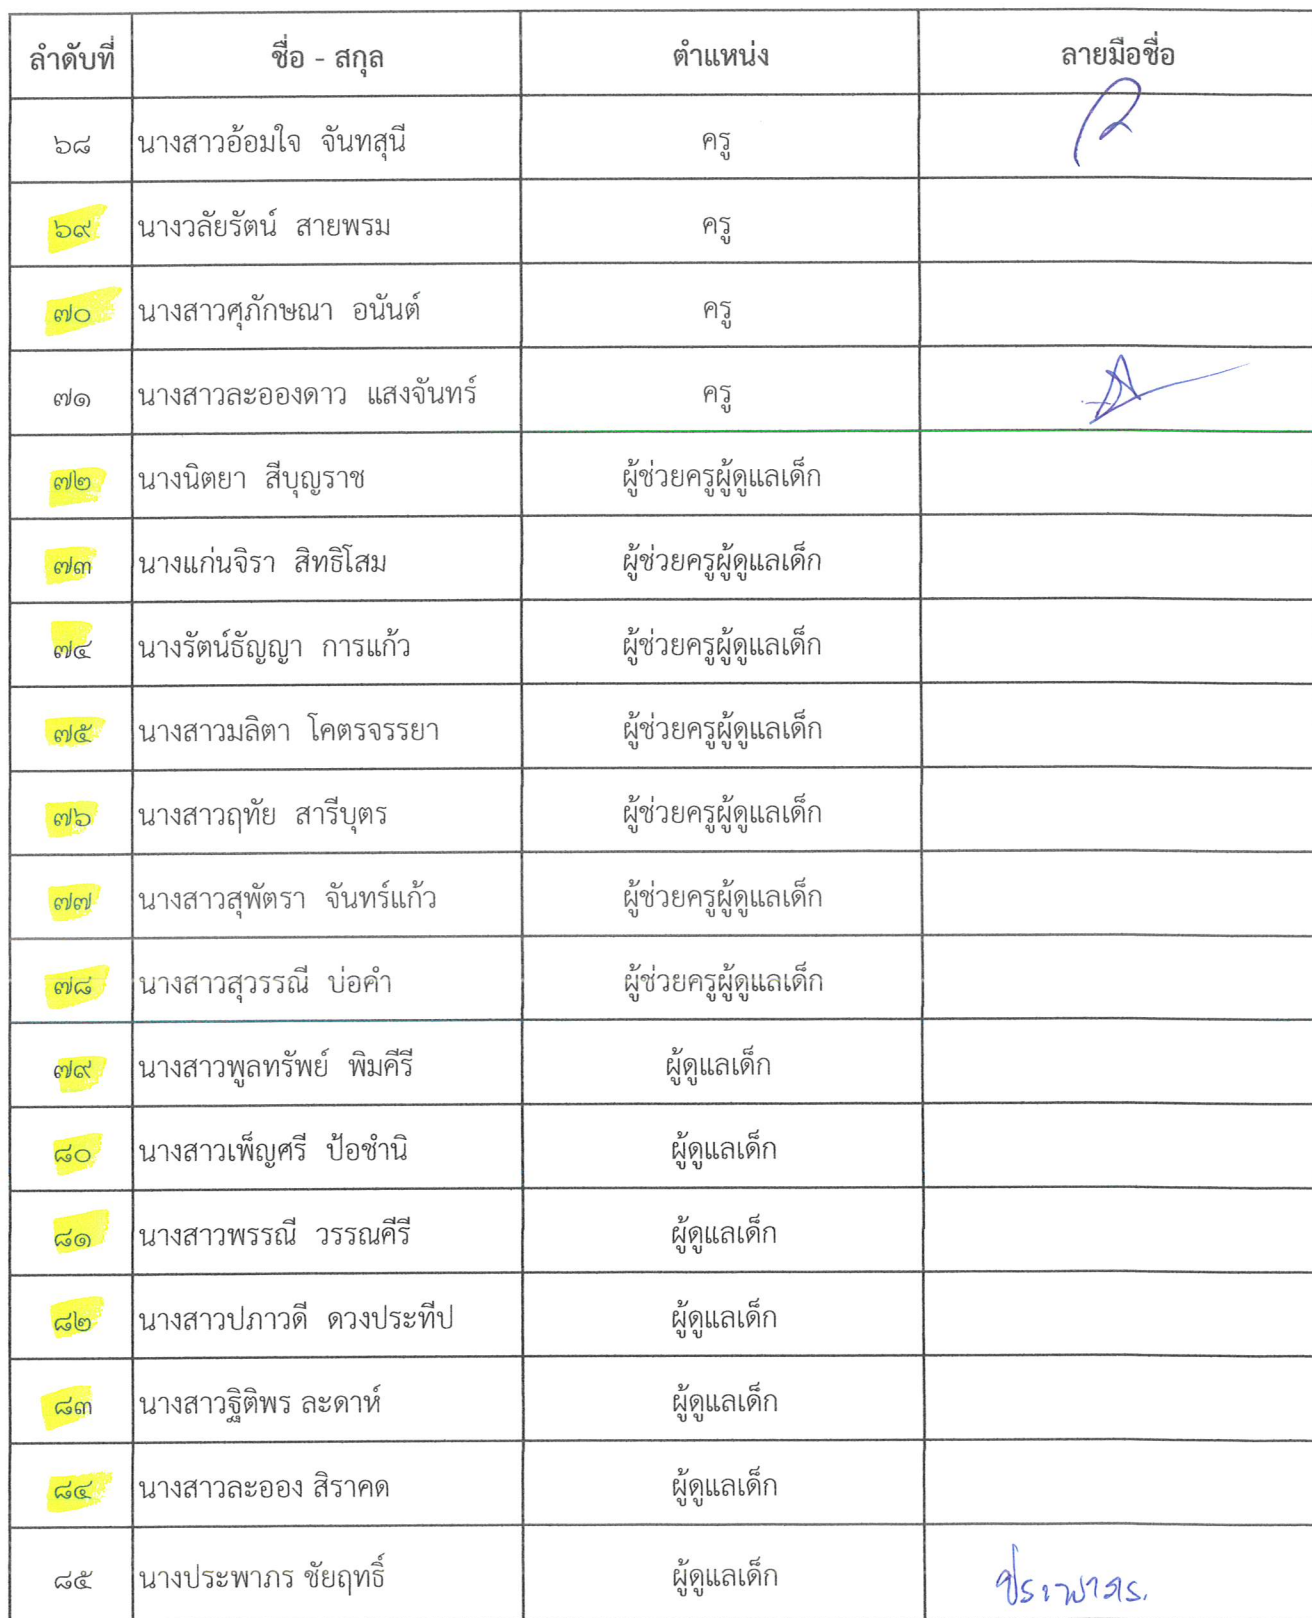 ลำดับที่ ชื่อ - สกุล ตำแหน่ง ลายมือชื่อ
๖๘ นางสาวอ้อมใจ จันทสุนี ครู
๖๙ นางวลัยรัตน์ สายพรม ครู
๗๐ นางสาวศุภักษณา อนันต์ ครู
๗๑ นางสาวละอองดาว แสงจันทร์ ครู
๗๒ นางนิตยา สีบุญราช ผู้ช่วยครูผู้ดูแลเด็ก
๗๓ นางแก่นจิรา สิทธิโสม ผู้ช่วยครูผู้ดูแลเด็ก
๗๔ นางรัตน์ธัญญา การแก้ว ผู้ช่วยครูผู้ดูแลเด็ก
๗๕ นางสาวมลิตา โคตรจรรยา ผู้ช่วยครูผู้ดูแลเด็ก
๗๖ นางสาวฤทัย สารีบุตร ผู้ช่วยครูผู้ดูแลเด็ก
๗๗ นางสาวสุพัตรา จันทร์แก้ว ผู้ช่วยครูผู้ดูแลเด็ก
๗๘ นางสาวสุวรรณี บ่อคำ ผู้ช่วยครูผู้ดูแลเด็ก
๗๙ นางสาวพูลทรัพย์ พิมคีรี ผู้ดูแลเด็ก
๘๐ นางสาวเพ็ญศรี ป้อชำนิ ผู้ดูแลเด็ก
๘๑ นางสาวพรรณี วรรณคีรี ผู้ดูแลเด็ก
๘๒ นางสาวปภาวดี ดวงประทีป ผู้ดูแลเด็ก
๘๓ นางสาวฐิติพร ละดาห์ ผู้ดูแลเด็ก
๘๔ นางสาวละออง สิราคด ผู้ดูแลเด็ก
๘๕ นางประพาภร ชัยฤทธิ์ ผู้ดูแลเด็ก ประพาภร.